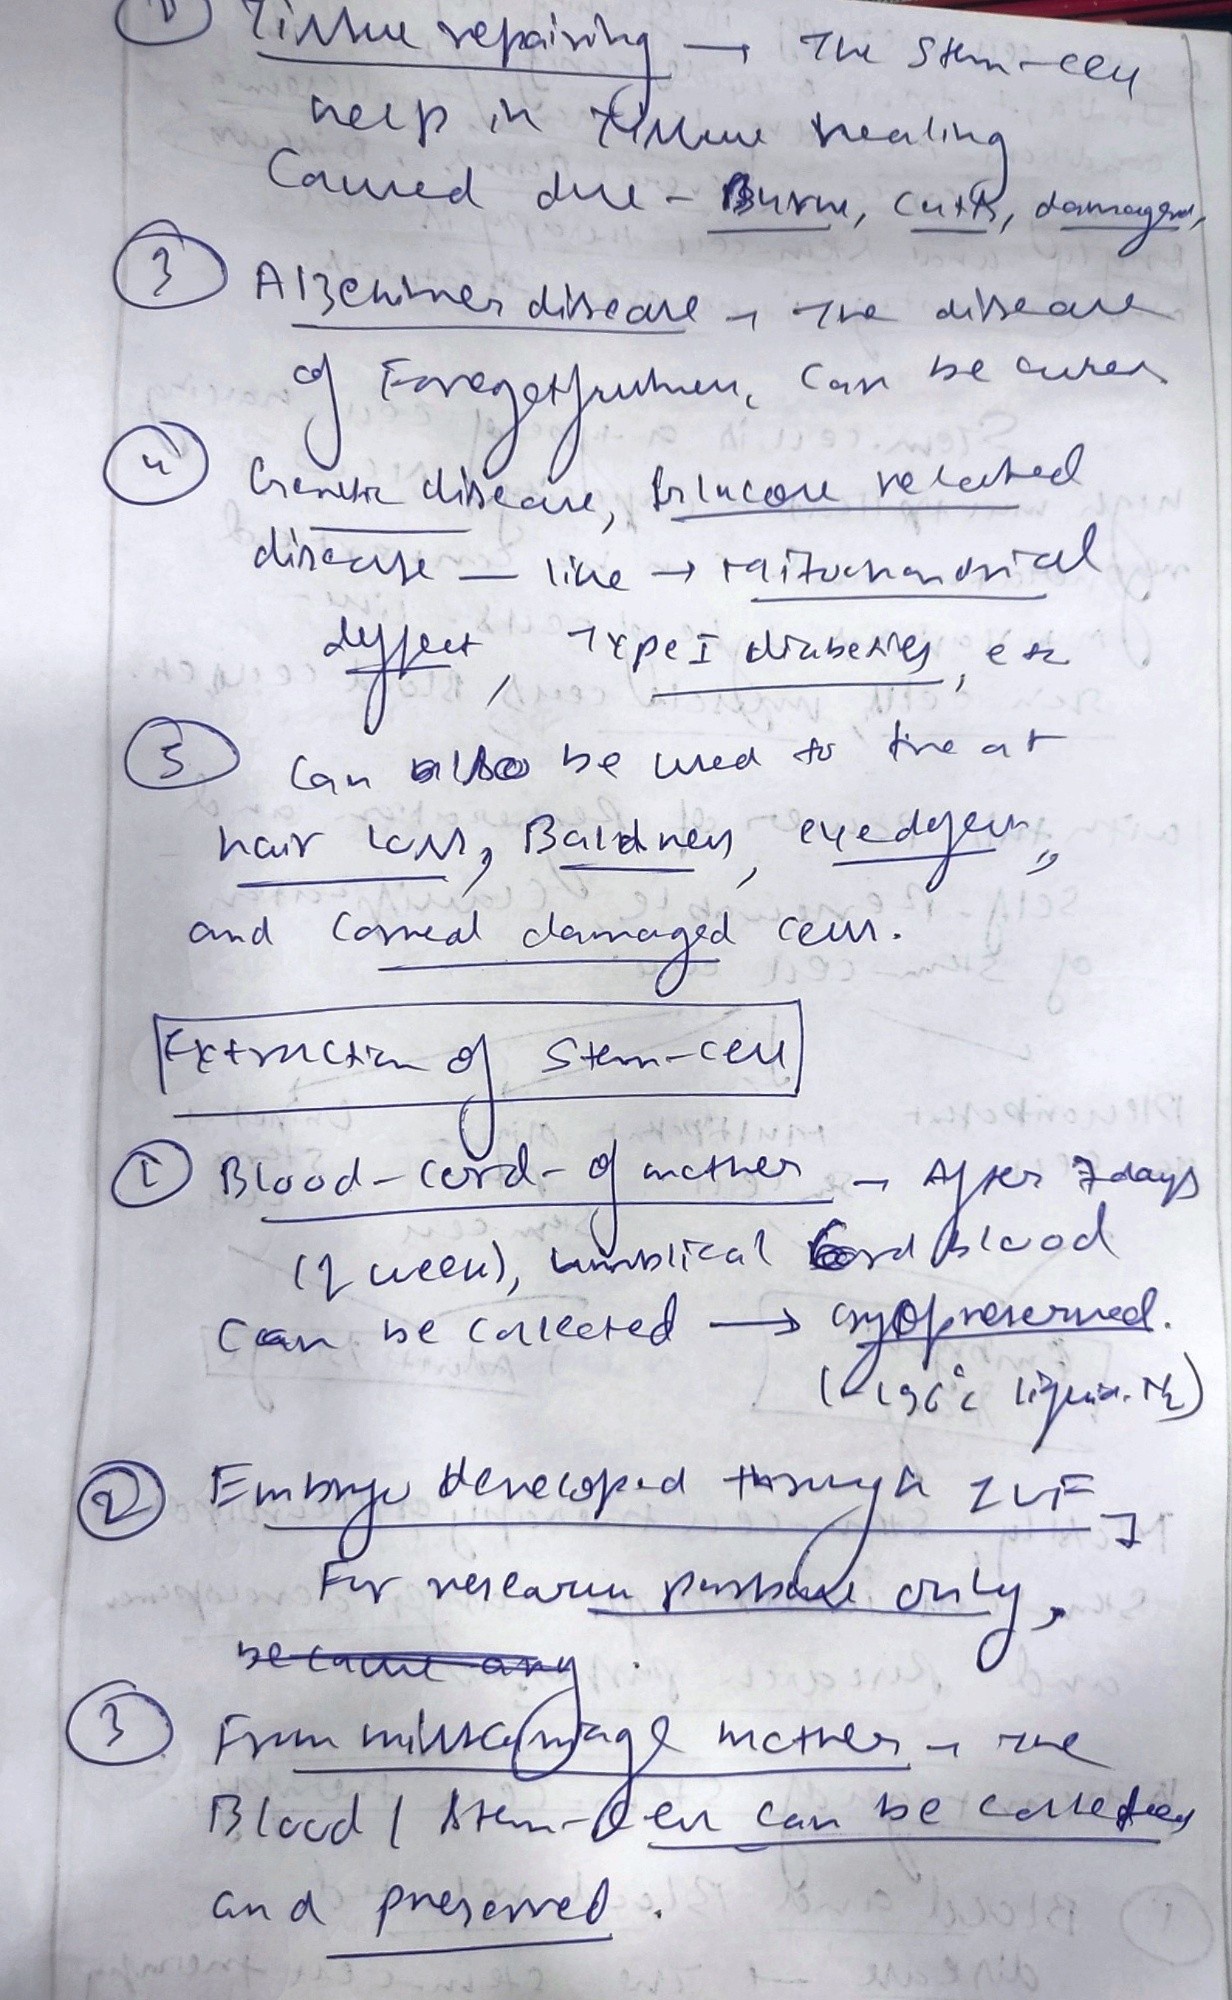 ② Tissue repairing → The Stem-cell
help in Tissue healing
Caused due - Burn, cuts, damaged,
③ Alzehimer disease → The disease
of Foregetfulness, can be cured
④ Genetic disease, Glucose related
disease — like → mitochondrial
deffect, Type I diabeties, etc
⑤ Can also be used to treat
hair loss, Baldness, eye defect,
and corneal damaged cells.
Extraction of Stem-cell
① Blood-cord-of mother → After 7 days
(1 week), umblical Cord Blood
Can be collected → cryopreserved.
(-196°C liquid N2)
② Embryo developed through IVF,
For research purpose only,
because any
③ From misscarriage mother → The
Blood / Stem-cell can be collected
and preserved.